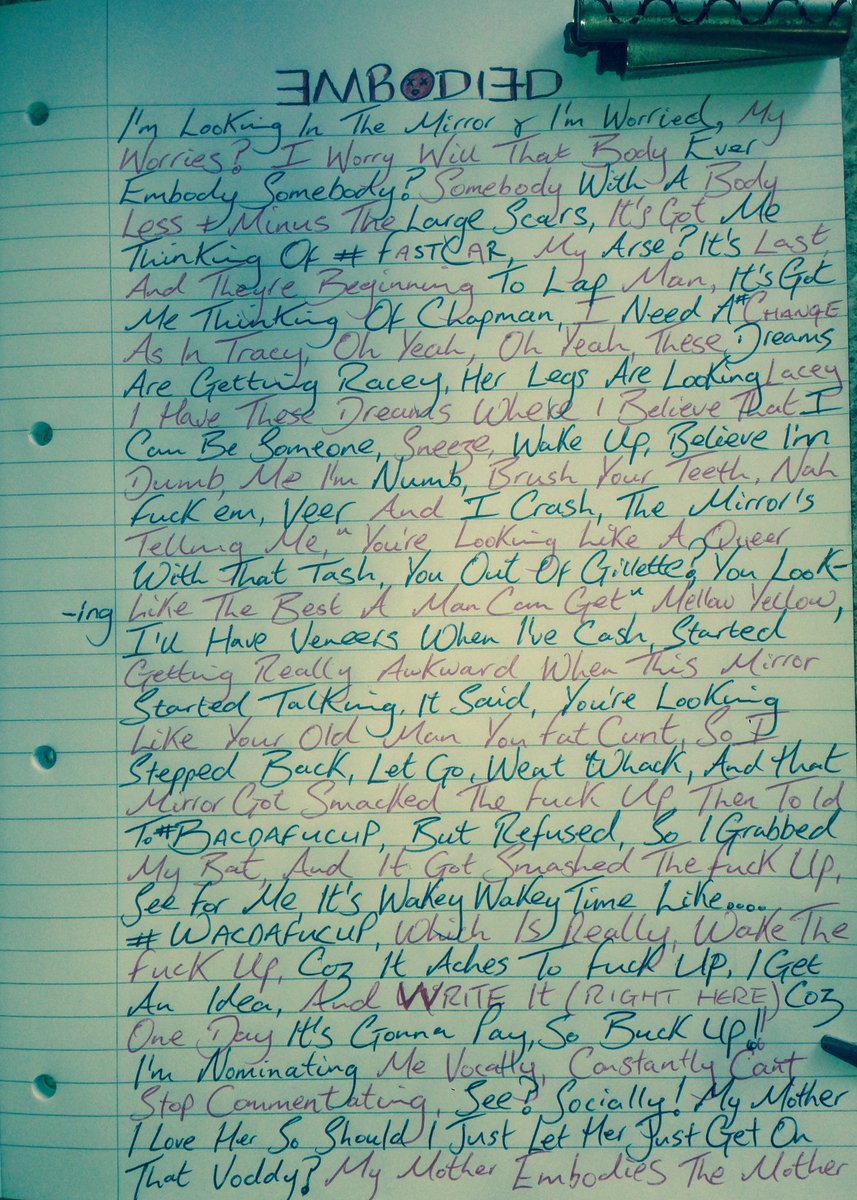 EMBODIED
I'm Looking In The Mirror & I'm Worried, My
Worries? I Worry Will That Body Ever
Embody Somebody? Somebody With A Body
Less + Minus The Large Scars, It's Got Me
Thinking Of # FASTCAR, My Arse? It's Last,
And They're Beginning To Lap Man, It's Got
Me Thinking Of Chapman, I Need A #CHANGE
As In Tracy, Oh Yeah, Oh Yeah, These Dreams
Are Getting Racey, Her Legs Are Looking Lacey
I Have These Dreams Where I Believe That I
Can Be Someone, Sneeze, Wake Up, Believe I'm
Dumb, Me I'm Numb, Brush Your Teeth, Nah
Fuck em, Veer And I Crash, The Mirror's
Telling Me, "You're Looking Like A Queer
With That Tash, You Out Of Gillette? You Look-
-ing Like The Best A Man Can Get" Mellow Yellow,
I'll Have Veneers When I've Cash, Started
Getting Really Awkward When This Mirror
Started Talking, It Said, You're Looking
Like Your Old Man You Fat Cunt, So I
Stepped Back, Let Go, Went Whack, And That
Mirror Got Smacked The Fuck Up Then Told
To #BACDAFUCUP, But Refused, So I Grabbed
My Bat, And It Got Smashed The Fuck Up,
See For Me, It's Wakey Wakey Time Like....
# WACDAFUCUP, Which Is Really, Wake The
Fuck Up, Coz It Aches To Fuck Up, I Get
An Idea, And WRITE It (RIGHT HERE) Coz
One Day It's Gonna Pay, So Buck Up!!
I'm Nominating Me Vocally, Constantly Can't
Stop Commentating, See? Socially! My Mother
I Love Her So Should I Just Let Her Just Get On
That Voddy? My Mother Embodies The Mother